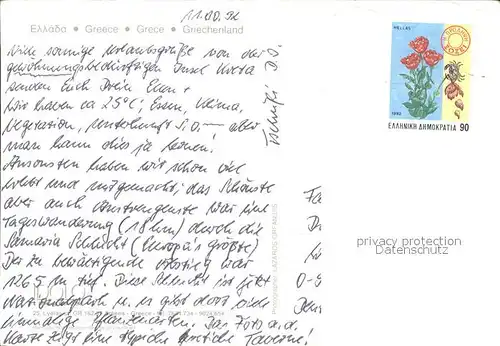 11.00.92
Ελλάδα • Greece • Grèce • Griechenland
Viele sonnige Urlaubsgrüße von der
gewöhnungsbedürftigen Insel Kreta
senden Euch
Wir haben ca 25°C; Essen, Klima,
Vegetation, Unterkunft s.o, – aber
man kann dies ja
Ansonsten haben wir schon viel
erlebt und mitgemacht, das Schönste
aber auch Anstrengenste war eine
Tageswanderung (18 km) durch die
Samaria Schlucht (Europa's größte)
Der zu bewältigende Abstieg war
1265 m tief. Diese Schlucht ist jetzt
Nationalpark u. es gibt dort viele
einmalige Pflanzenarten. Das Foto a.d.
Karte zeigt eine typische kretische Taverne!
Tschüß
HELLAS
1992
ΕΛΛΗΝΙΚΗ ΔΗΜΟΚΡΑΤΙΑ 90
privacy protection
Datenschutz
Fa